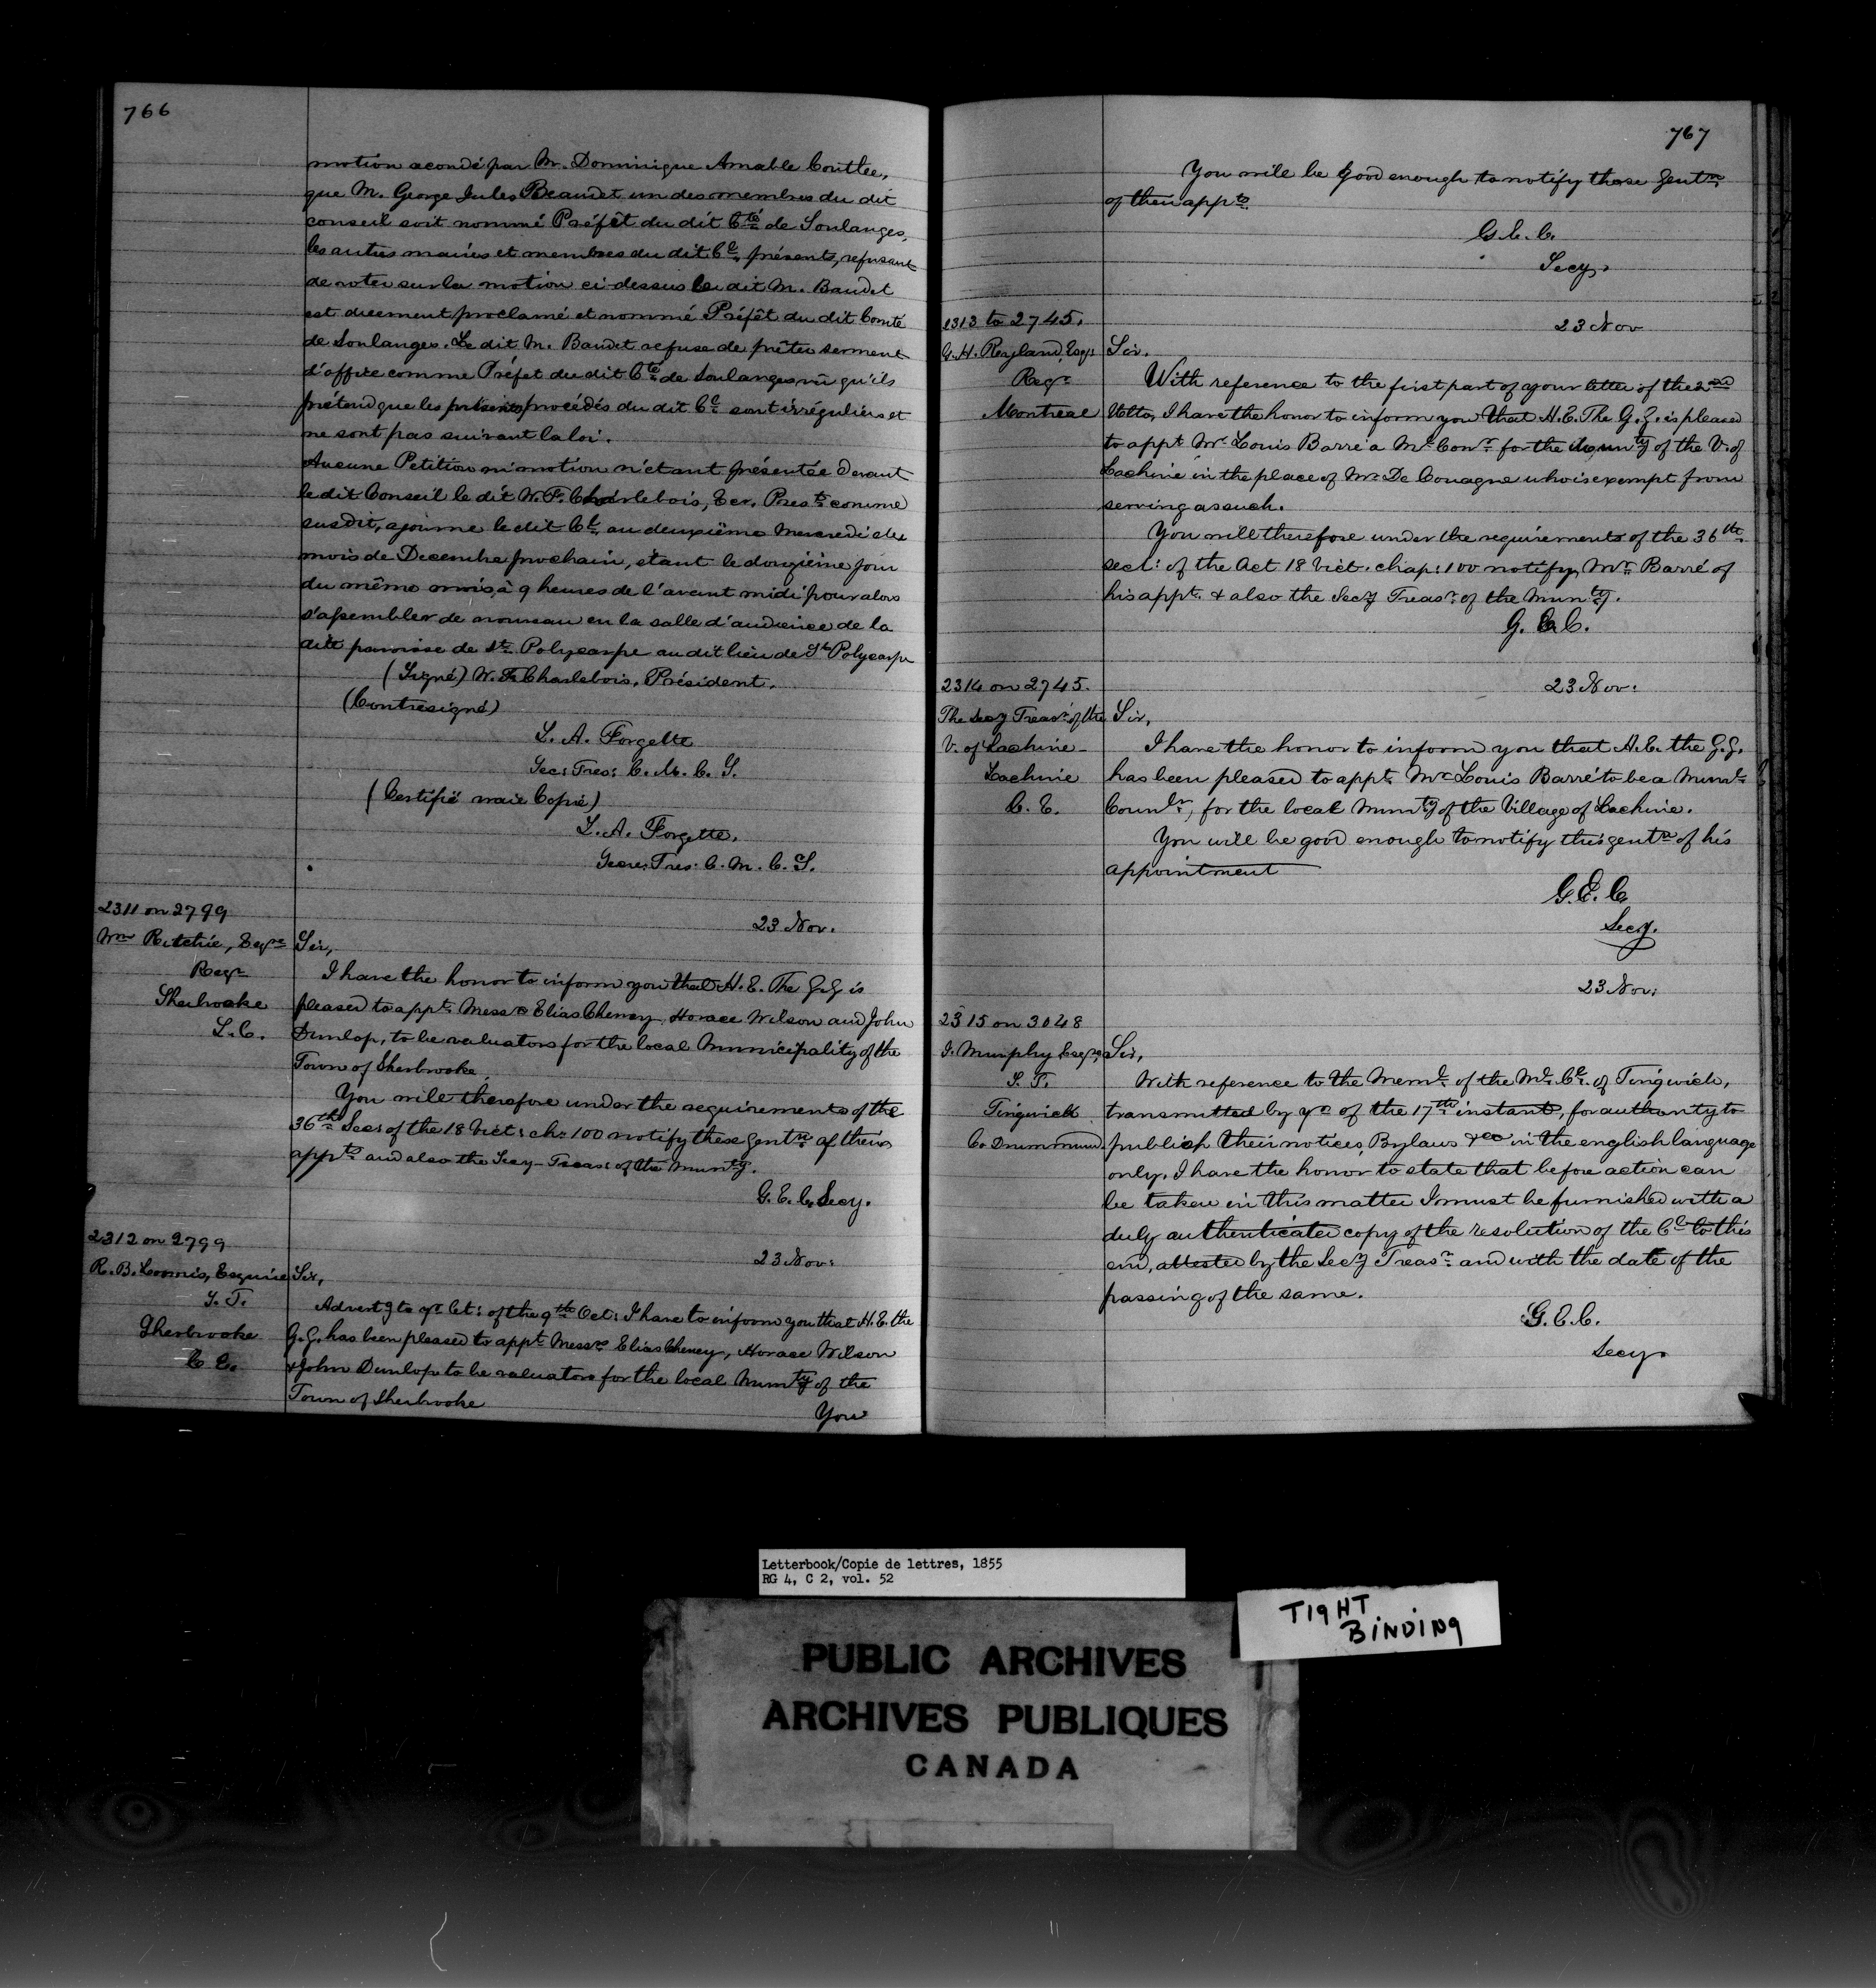 766
motion secondé par M. Dominique Amable Coutlee,
que M. George Jules Beaudet un des membres du dit
conseil soit nommé Préfêt du dit Cté de Soulanges,
les autres maires et membres du dit Cl. présents, refusant
de voter sur la motion ci-dessus le dit M. Baudet
est duement proclamé et nommé Préfêt du dit Comté
de Soulanges. Le dit M. Baudet refuse de prêter serment
d'office comme Préfet du dit Cté de Soulanges vu qu'ils
prétend que les présents procédés du dit Cl sont irréguliers et
ne sont pas suivant la loi.
Aucune Petition ni motion n'etant présentée devant
le dit Conseil le dit W. F. Charlebois, Ecr, Prest comme
susdit, ajourne le dit Cl. au deuxiême Mercredi du
mois de Decembre prochain, étant le douzième jour
du même mois, à 9 heures de l'avant midi pour alors
s'assembler de nouveau en la salle d'audience de la
dite paroisse de St. Polycarpe au dit lieu de St Polycarpe
(Signé) W. F. Charlebois, Président.
(Contresigné)
L. A. Forgette
Sec: Tres: C. M. C. S.
(Certifié vraie Copie)
L. A. Forgette.
Secre: Tres: C. M. C. S.
2311 on 2799
23 Nov.
Wm Ritchie, Esqre
Regr
Sherbrooke
L.C.
Sir,
I have the honor to inform you that H. E. The G.G is
pleased to appt. Messrs Elias Cheney, Horace Wilson and John
Dunlop, to be valuators for the local Municipality of the
Town of Sherbrooke.
You will therefore under the requirements of the
36th Sec: of the 18 Vict: ch: 100 notify these gentn of their
appts and also the Secy-Treas: of the Munty.
G. E. C. Secy.
2312 on 2799
23 Nov:
R. B. Loomis, Esquire
S. T.
Sherbrooke
C. E.
Sir,
Advertg to yr let: of the 9th Oct: I have to inform you that H. E. the
G. G. has been pleased to appt Messrs Elias Cheney, Horace Wilson
& John Dunlop to be valuators for the local Munty of the
Town of Sherbrooke
You
767
You will be good enough to notify these gentn
of their appts.
G. E. C.
Secy.
2313 to 2745.
23 Nov
G. H. Ryland, Esqr
Regr
Montreal
Sir,
With reference to the first part of your letter of the 2nd
Ulto, I have the honor to inform you that H. E. The G. G. is pleased
to appt Mr. Louis Barré a Ml Conr for the Munty of the V. of
Lachine in the place of Mr De Couagne who is exempt from
serving as such.
You will therefore under the requirements of the 36th
sect: of the Act 18 Vict. chap: 100 notify Mr Barré of
his appt. & also the Secy Treasr of the Munty.
G. E. C.
2314 on 2745.
23 Nov:
The Secy Treasr of the
V. of Lachine-
Lachine
C. E.
Sir,
I have the honor to inform you that H. E. the G. G.
has been pleased to appt. Mr Louis Barré to be a Munl
Counlr, for the local Munty of the Village of Lachine.
You will be good enough to notify this gentn of his
appointment
G. E. C.
Secy.
23 Nov:
2315 on 3048
J. Murphy Esqre,
S. T.
Tingwick
Co Drummund.
Sir,
With reference to the Meml of the Ml. Cl. of Tingwick,
transmitted by yn of the 17th instant, for authority to
publish their notices, Bylaws &ca in the english language
only. I have the honor to state that before action can
be taken in this matter I must be furnished with a
duly authenticated copy of the resolution of the Cl to this
end, attested by the Secy Treasr and with the date of the
passing of the same.
G. E. C.
Secy.
Letterbook/Copie de lettres, 1855
RG 4, C 2, vol. 52
TIGHT
BINDING
PUBLIC ARCHIVES
ARCHIVES PUBLIQUES
CANADA